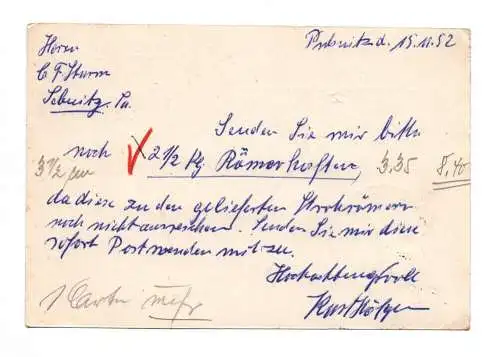 Pulsnitz d. 15.11.52
Herrn
C F Sturm
Sebnitz. Sa.
Senden Sie mir bitte
noch X 2 1/2 Kg Römerhaften 3.35 8.40
3 1/2 cm
da diese zu den gelieferten
noch nicht ausreichen. Senden Sie mir diese
sofort Postwendend mit zu.
Hochachtungsvoll
Karl
1 Carton mehr